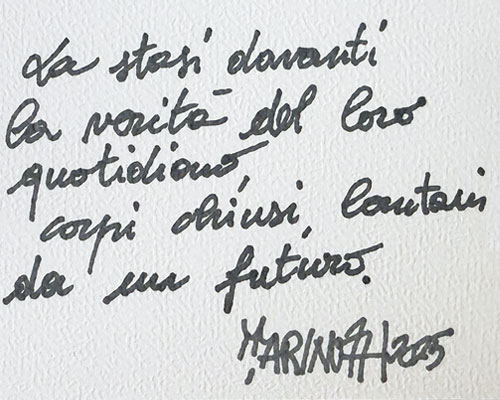 La stasi davanti
la verità del loro
quotidiano,
corpi chiusi, lontani
da un futuro.
M. MARINOZZI 2025